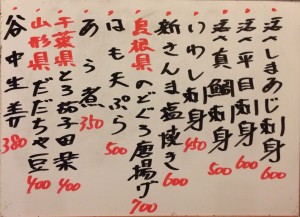 活〆しまあじ刺身 600
活〆平目刺身 600
活〆真鯛刺身 500
いわし刺身 450
新さんま塩焼き 600
島根県のどぐろ唐揚げ 700
はも天ぷら 500
あら煮 350
千葉県とろ茄子田楽 400
山形県だだちゃ豆 400
谷中生姜 380